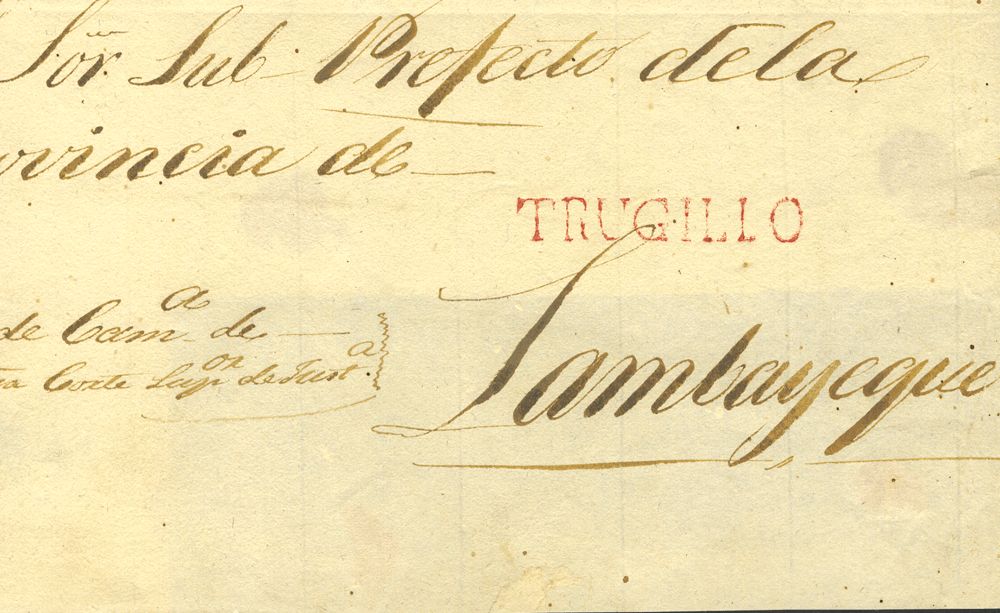 Sor. Sub Prefecto dela
ovincia de
TRUGILLO
de Cam.a de
Corte Supor de Just.a
Lambayeque